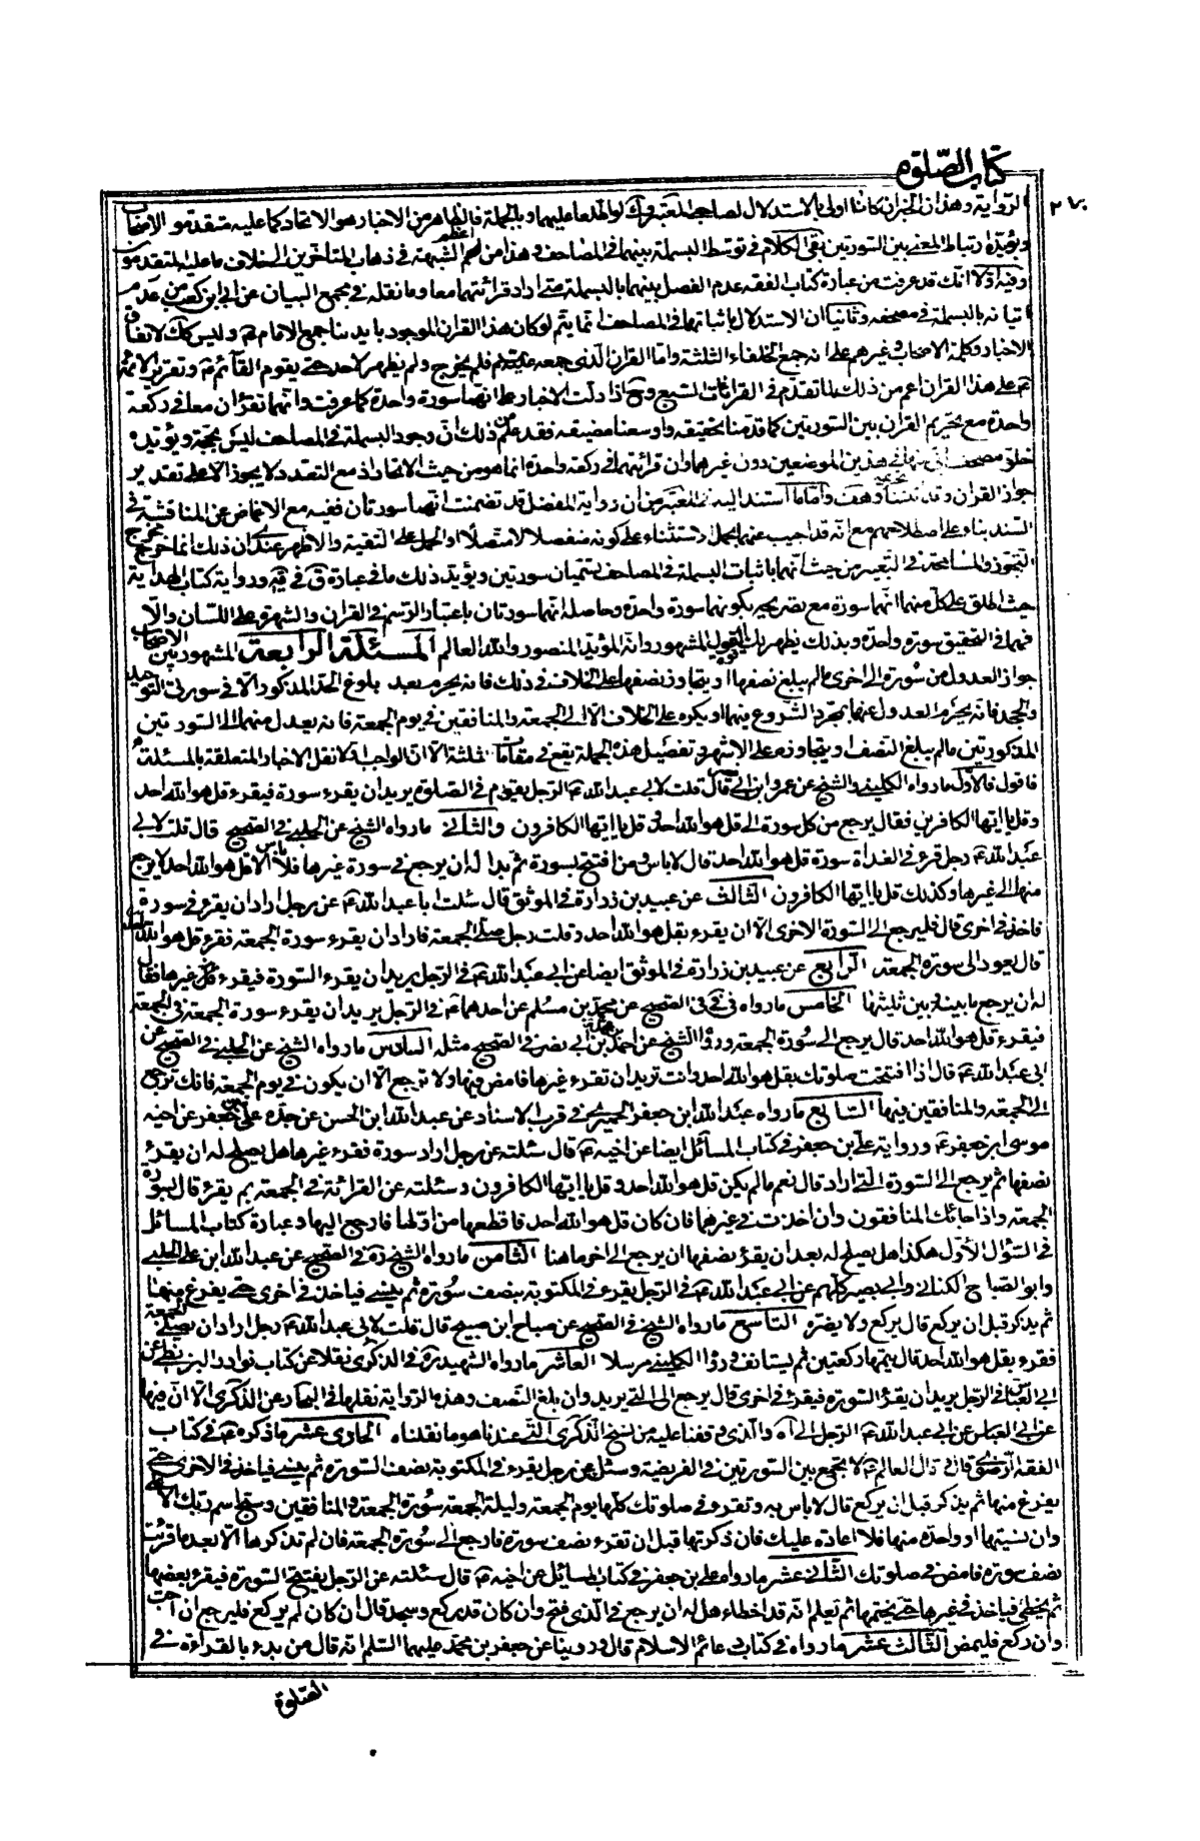 كتاب الصلوة
٢٧٠
الرواية وهذان الخبران كانا اولى بالاستدلال لصاحب المعتبر وك لو اطلعا عليهما وبالجملة فالظاهر من الاخبار هو الاتحاد كما عليه متقدمو الاصحاب
ويؤيده ارتباط المعنى بين السورتين بقى الكلام في توسط البسملة بينهما في المصاحف وهذا من اعظم الشبهة في ذهاب المتأخرين الى خلاف ما عليه المتقدمون
وفيه اولا انك قد عرفت من عبارة كتاب الفقه عدم الفصل بينهما بالبسملة متى اراد قرائتهما معا وما نقله في مجمع البيان عن ابي ابن كعب من عدم
اتيانه بالبسملة في مصحفه وثانيا ان الاستدلال باثباتهما في المصاحف انما يتم لو كان هذا القران الموجود بايدينا جمع الامام ع وليس كك لاتفاق
الاخبار وكلمة الاصحاب وغيرهم على انه جمع الخلفاء الثلثة واما القران الذى جمعه ع فلم يخرج ولم يظهر لاحد حتى يقوم القائم ع وتقرير الائمة
ع على هذا القران اعم من ذلك لما تقدم في القراءات السبع وح اذا دلت الاخبار على انهما سورة واحدة كما عرفت وانهما تقرأن معا في ركعة
واحدة مع تحريم القران بين السورتين كما قدمنا تحقيقه واوسعنا مضيقه فقد علم من ذلك ان وجود البسملة في المصاحف ليس بحجة ويؤيده
خلو مصحف ابي منها في هذين الموضعين دون غيرهما وان قرائتهما في ركعة واحدة انما هو من حيث الاتحاد اذ مع التعدد لا يجوز الا على تقدير
جواز القران وقد بينا ضعفه واما ما استند اليه في المعتبر من ان رواية المفضل قد تضمنت انهما سورتان ففيه مع الاغماض عن المناقشة في
السند بناء على اصطلاحهم مع انه قد اجيب عنه بحمل الاستثناء على كونه منفصلا لا متصلا او الحمل على التقية والاظهر عندي ان ذلك انما خرج مخرج
التجوز والمسامحة في التعبير من حيث انهما باثبات البسملة في المصاحف يسميان سورتين ويؤيد ذلك ما في عبارة ق في يه ورواية كتاب الهداية
حيث اطلق على كل منهما انهما سورة مع تصريحه بكونهما سورة واحدة وحاصله انهما سورتان باعتبار الرسم في القران والشهرة على اللسان والا
فهما في التحقيق سورة واحدة وبذلك يظهر لك قوة القول المشهور وانه المؤيد المنصور والله العالم المسئلة الرابعة المشهور بين الاصحاب
جواز العدول من سورة الى اخرى ما لم يبلغ نصفها او يتجاوز نصفها على الخلاف في ذلك فانه يحرم بعد بلوغ الحد المذكور الا في سورتي التوحيد
والجحد فانه يحرم العدول عنهما بمجرد الشروع فيهما او يكره على الخلاف الا الى الجمعة والمنافقين في يوم الجمعة فانه يعدل منهما الى السورتين
المذكورتين ما لم يبلغ النصف او يتجاوزه على الاشهر وتفصيل هذه الجملة يقع في مقامات ثلثة الا ان الواجب اولا نقل الاخبار المتعلقة بالمسئلة
فاقول فالاول ما رواه الكليني والشيخ عن عمرو ابن ابي نصر قال قلت لابي عبد الله ع الرجل يقوم في الصلوة يريد ان يقرء سورة فيقرء قل هو الله احد
وقل يا ايها الكافرين فقال يرجع من كل سورة الى قل هو الله احد وقل يا ايها الكافرون والثاني ما رواه الشيخ عن الحلبي في الصحيح قال قلت لابي
عبد الله ع رجل قرء في الغداة سورة قل هو الله احد قال لا باس ومن افتتح بسورة ثم بدا له ان يرجع في سورة غيرها فلا باس الا قل هو الله احد لا يرجع
منها الى غيرها وكذلك قل يا ايها الكافرون الثالث عن عبيد بن زرارة في الموثق قال سئلت ابا عبد الله ع عن رجل اراد ان يقرء في سورة
فاخذ في اخرى قال فليرجع الى السورة الاخرى الا ان يقرء بقل هو الله احد وقلت رجل صلى الجمعة فاراد ان يقرء سورة الجمعة فقرء قل هو الله احد
قال يعود الى سورة الجمعة الرابع عن عبيد بن زرارة في الموثق ايضا عن ابي عبد الله ع في الرجل يريد ان يقرء السورة فيقرء غيرها فقال
له ان يرجع ما بينه وبين ثلثيها الخامس ما رواه في في الصحيح عن محمد بن مسلم عن احدهما ع في الرجل يريد ان يقرء سورة الجمعة في الجمعة
فيقرء قل هو الله احد قال يرجع الى سورة الجمعة وروا الشيخ عن احمد بن محمد بن ابي نصر في الصحيح مثله السادس ما رواه الشيخ عن الحلبي في الصحيح عن
ابي عبد الله ع قال اذا افتتحت صلوتك بقل هو الله احد وانت تريد ان تقرء غيرها فامض فيها ولا ترجع الا ان يكون في يوم الجمعة فانك ترجع
الى الجمعة والمنافقين فيها السابع ما رواه عبد الله ابن جعفر الحميري في قرب الاسناد عن عبد الله ابن الحسن عن جده على بن جعفر عن اخيه
موسى ابن جعفر ع ورواية علي بن جعفر في كتاب المسائل ايضا عن اخيه ع قال سئلته عن رجل اراد سورة فقرء غيرها هل يصلح له ان يقرء
نصفها ثم يرجع الى السورة التي اراد قال نعم ما لم يكن قل هو الله احد وقل يا ايها الكافرون وسئلته عن القرائة في الجمعة بم يقرء قال بسورة
الجمعة واذا جائك المنافقون وان اخذت في غيرهما فان كان قل هو الله احد فاقطعها من اولها فارجع اليها وعبارة كتاب المسائل
في السؤال الاول هكذا هل يصلح له بعد ان يقرء نصفها ان يرجع الى اخر ما هنا الثامن ما رواه الشيخ ره في الصحيح عن عبد الله ابن علي الحلبي
وابو الصباح الكناني وابي بصير كلهم عن ابي عبد الله ع في الرجل يقرء في المكتوبة بنصف سورة ثم ينسى فياخذ في اخرى حتى يفرغ منها
ثم يذكر قبل ان يركع قال يركع ولا يضره التاسع ما رواه الشيخ في الصحيح عن صباح ابن صبيح قال قلت لابي عبد الله ع رجل اراد ان يصلى الجمعة
فقرء بقل هو الله احد قال يتمها ركعتين ثم يستانف وروا الكليني مرسلا العاشر ما رواه الشهيد ره في الذكرى نقلا عن كتاب نوادر البزنطي عن
ابي العباس في الرجل يريد ان يقرء السورة فيقرء في اخرى قال يرجع الى التي يريد وان بلغ النصف وهذه الرواية نقلها في البحار عن الذكرى الا ان فيها
عن ابي العباس عن ابي عبد الله ع الرجل الى آه والذى وقفنا عليه من نسخ الذكرى التي عندنا هو ما نقلناه الحادى عشر ما ذكره ع في كتاب
الفقه الرضوي قال وقال العالم ع لا تجمع بين السورتين في الفريضة وسئل عن رجل يقرء في المكتوبة نصف السورة ثم ينسى فياخذ في الاخرى حتى
يفرغ منها ثم يذكر قبل ان يركع قال لا باس به وتقرء في صلوتك كلها يوم الجمعة وليلة الجمعة سورة الجمعة والمنافقين وسبح اسم ربك الاعلى
وان نسيتها او واحدة منها فلا اعادة عليك فان ذكرتها قبل ان تقرء نصف سورة فارجع الى سورة الجمعة فان لم تذكرها الا بعد ما قرئت
نصف سورة فامض في صلوتك الثاني عشر ما رواه علي بن جعفر في كتاب المسائل عن اخيه ع قال سئلته عن الرجل يفتتح السورة فيقرء بعضها
ثم يخطى فياخذ في غيرها حتى يختمها ثم يعلم انه قد اخطاء هل له ان يرجع في الذى فتح وان كان قد ركع وسجد قال ان كان لم يركع فليرجع ان احب
وان ركع فليمض الثالث عشر ما رواه في كتاب دعائم الاسلام قال وروينا عن جعفر بن محمد عليهما السلم انه قال من بدء بالقراءة في
الصلوة